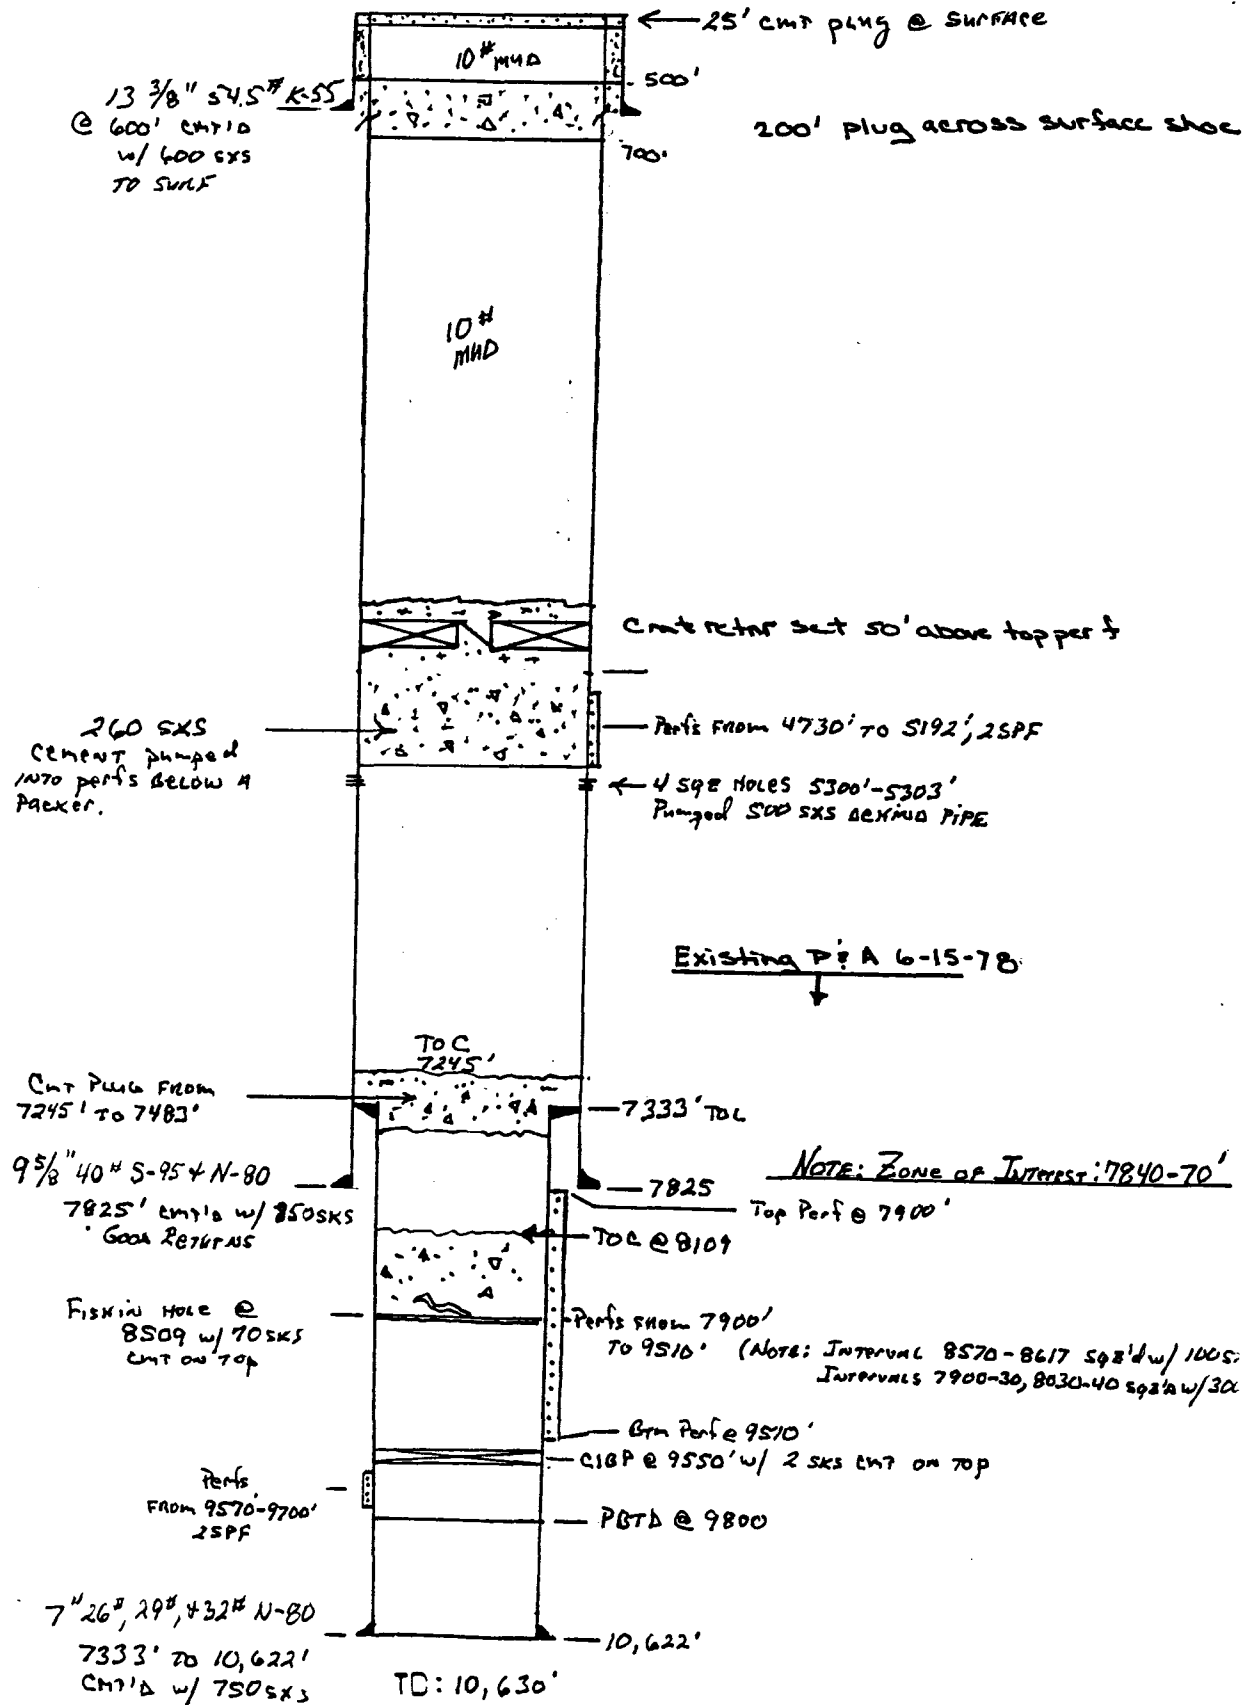 25' cmt plug @ surface
10# MUD
500'
13 3/8" 54.5# K-55
@ 600' cmt'd
w/ 600 sxs
TO SURF
200' plug across surface shoe
700'
10#
MUD
Cmt retnr set 50' above top perf
260 SXS
cement pumped
INTO perfs BELOW A
Packer.
Perfs From 4730' TO 5192', 2SPF
4 SQZ HOLES 5300'-5303'
Pumped 500 SXS BEHIND PIPE
Existing P & A 6-15-78
TOC
7245'
CMT PLUG FROM
7245' TO 7483'
7333' TOL
9 5/8" 40# S-95 + N-80
7825' cmt'd w/ 850 SKS
GOOD RETURNS
NOTE: ZONE OF INTEREST: 7840-70'
7825
Top Perf @ 7900'
TOC @ 8109
FISH IN HOLE @
8509 w/ 70 SKS
CMT ON TOP
Perfs FROM 7900'
TO 9510' (NOTE: INTERVAL 8570-8617 SQZ'd w/ 100 S
INTERVALS 7900-30, 8030-40 SQZ'd w/ 300
BTM Perf @ 9510'
CIBP @ 9550' w/ 2 SKS CMT ON TOP
Perfs
FROM 9570-9700'
2SPF
PBTD @ 9800
7" 26#, 29#, + 32# N-80
7333' TO 10,622'
CMT'D w/ 750 SXS
10,622'
TD: 10,630'